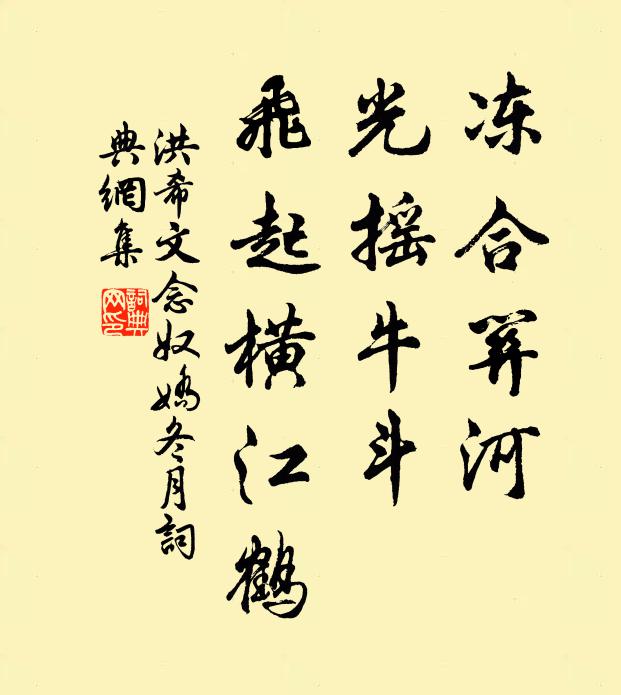 冻合關河
光摇牛斗
飛起横江鶴
洪希文念奴嬌冬月詞
典網集
詞典
网印